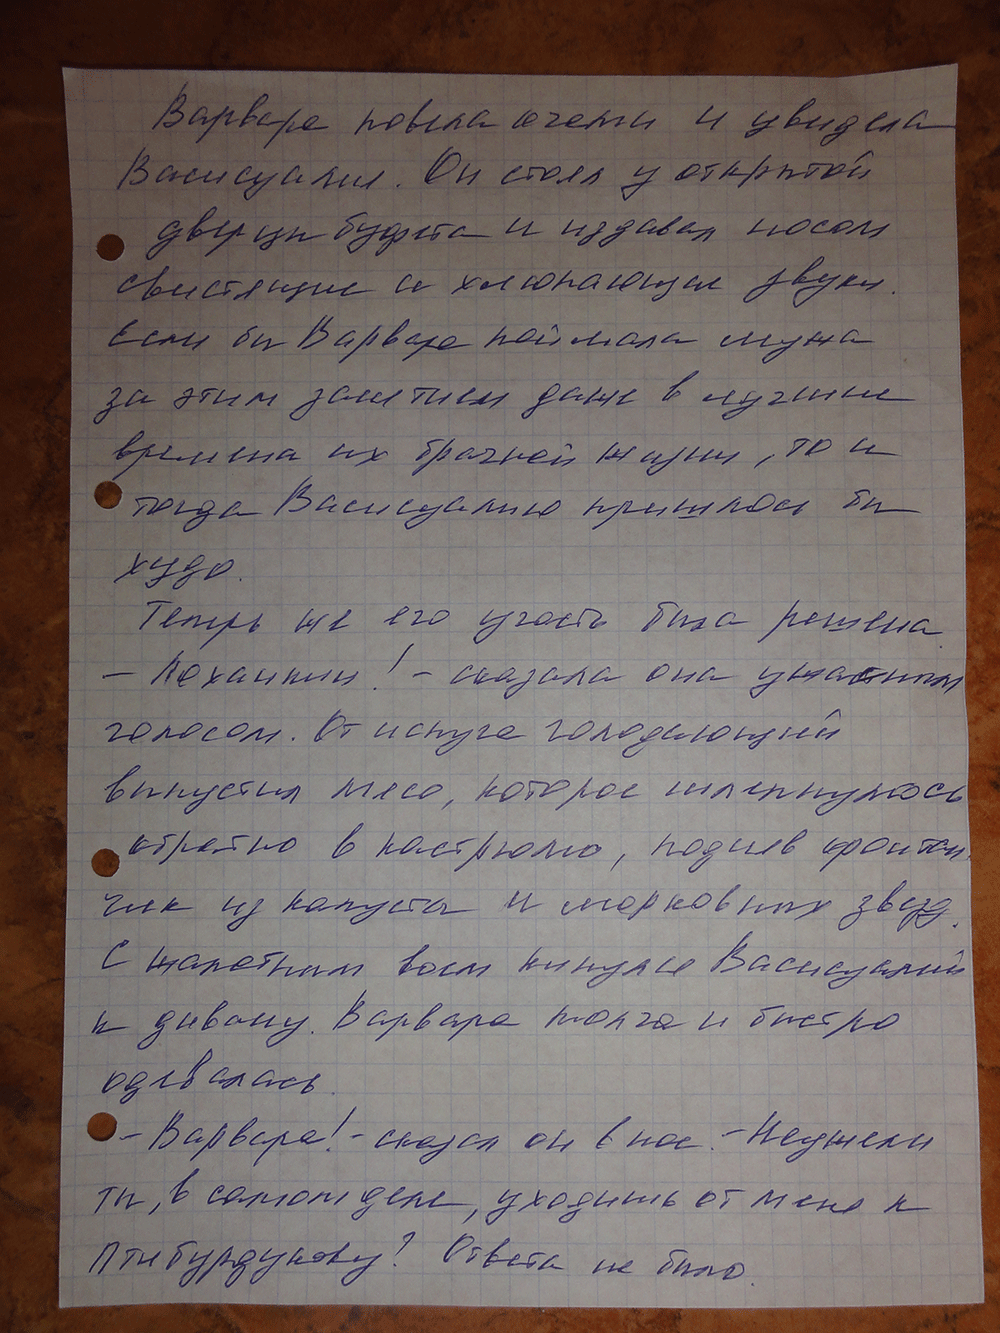 Варвара повела очами и увидела
Васисуалия. Он стоял у открытой
дверцы буфета и издавал носом
свистящие и хлюпающие звуки.
Если бы Варвара поймала мужа
за этим занятием даже в лучшие
времена их брачной жизни, то и
тогда Васисуалию пришлось бы
худо.
Теперь же его участь была решена
- Лоханкин! - сказала она ужасным
голосом. От испуга голодающий
выпустил мясо, которое шлепнулось
обратно в кастрюлю, подняв фонтан-
чик из капусты и морковных звезд.
С жалобным воем кинулся Васисуалий
к дивану. Варвара молча и быстро
одевалась.
- Варвара! - сказал он в нос. - Неужели
ты, в самом деле, уходишь от меня к
Птибурдукову? Ответа не было.